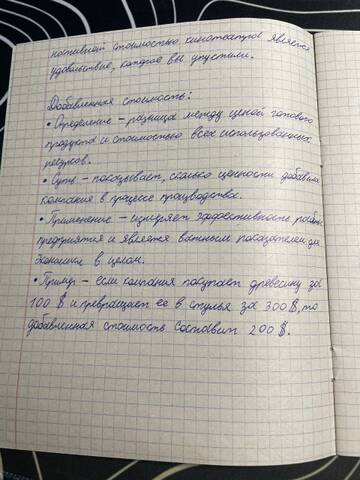 нативной стоимостью кинотеатра является
удовольствие, которое вы упустили.
Добавленная стоимость:
• Определение – разница между ценой готового
продукта и стоимостью всех использованных
ресурсов.
• Суть – показывает, сколько ценности добавила
компания в процессе производства.
• Применение – измеряет эффективность работы
предприятия и является важным показателем для
экономики в целом.
• Пример – если компания покупает древесину за
100 $ и превращает её в стулья за 300 $, то
добавленная стоимость составит 200 $.